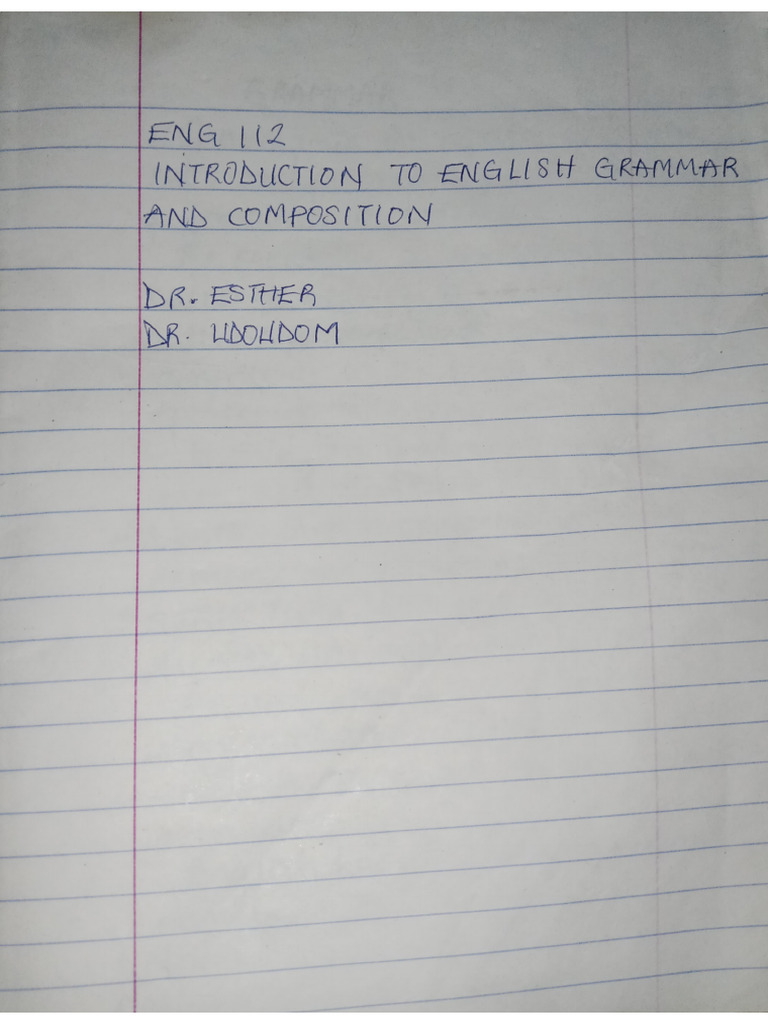 ENG 112
INTRODUCTION TO ENGLISH GRAMMAR
AND COMPOSITION
DR. ESTHER
DR. UDOUDOM